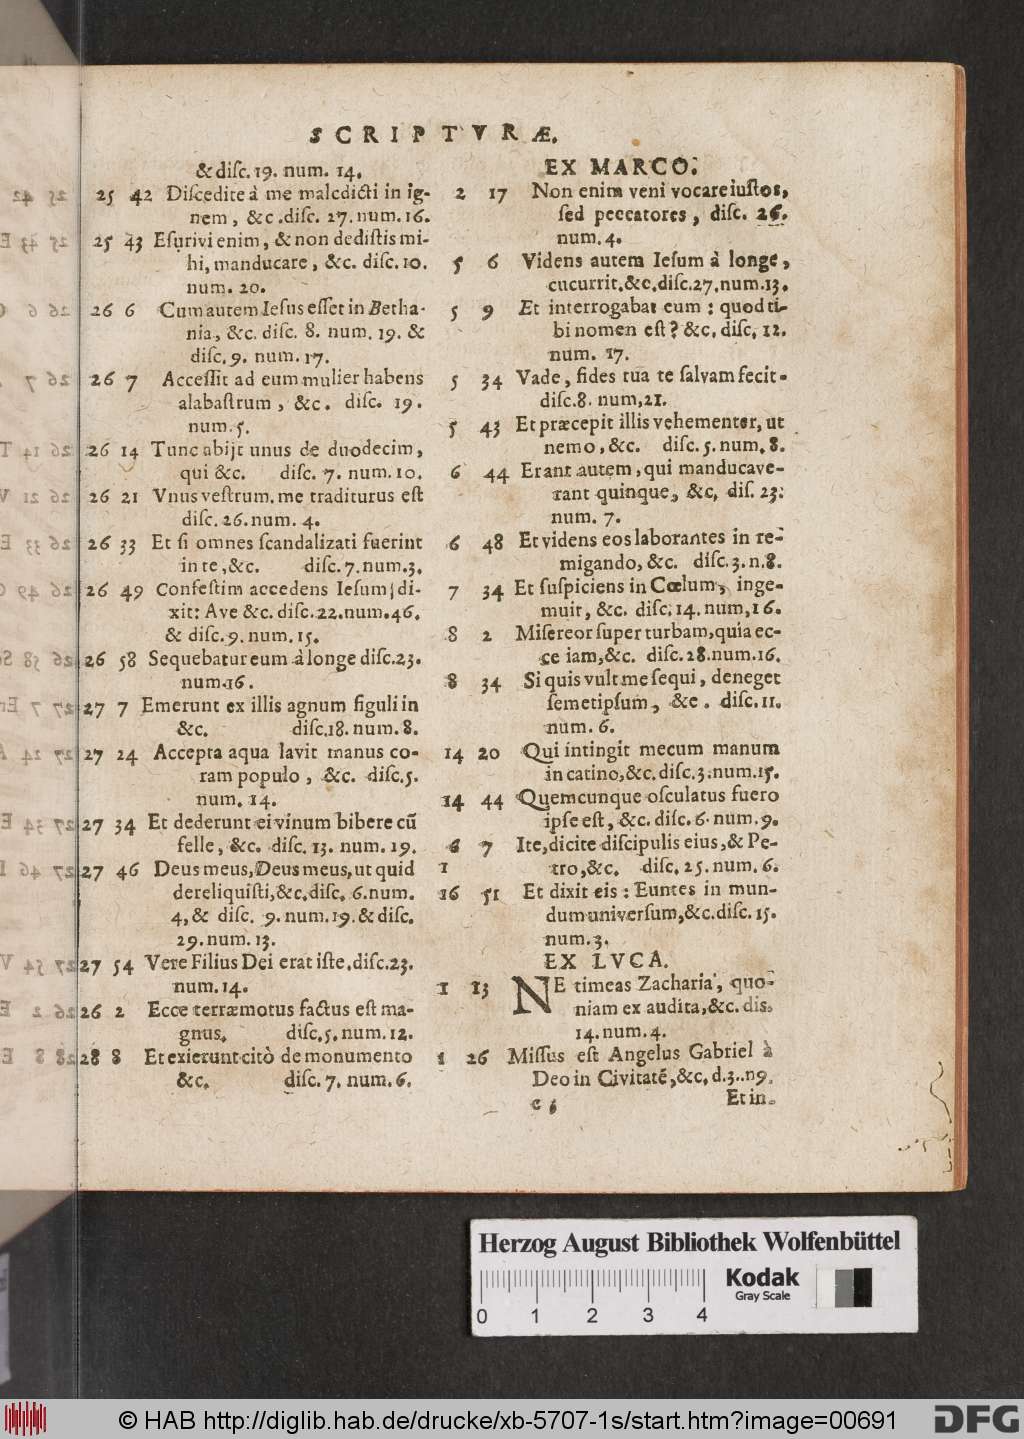 SCRIPTVRÆ.
& disc. 19. num. 14.
25 42 Discedite à me maledicti in ig-
nem, &c. disc. 27. num. 16.
25 43 Esurivi enim, & non dedistis mi-
hi, manducare, &c. disc. 10.
num. 20.
26 6 Cum autem Iesus esset in Betha-
nia, &c. disc. 8. num. 19. &
disc. 9. num. 17.
26 7 Accessit ad eum mulier habens
alabastrum, &c. disc. 19.
num. 5.
26 14 Tunc abijt unus de duodecim,
qui &c. disc. 7. num. 10.
26 21 Vnus vestrum. me traditurus est
disc. 26. num. 4.
26 33 Et si omnes scandalizati fuerint
in te, &c. disc. 7. num. 3.
26 49 Confestim accedens Iesum, di-
xit: Ave &c. disc. 22. num. 46.
& disc. 9. num. 15.
26 58 Sequebatur eum à longe disc. 23.
num. 16.
27 7 Emerunt ex illis agnum figuli in
&c. disc. 18. num. 8.
27 24 Accepta aqua lavit manus co-
ram populo, &c. disc. 5.
num. 14.
27 34 Et dederunt ei vinum bibere cū
felle, &c. disc. 13. num. 19.
27 46 Deus meus, Deus meus, ut quid
dereliquisti, &c. disc. 6. num.
4, & disc. 9. num. 19. & disc.
29. num. 13.
27 54 Vere Filius Dei erat iste. disc. 23.
num. 14.
26 2 Ecce terræmotus factus est ma-
gnus. disc. 5. num. 12.
28 8 Et exierunt citò de monumento
&c. disc. 7. num. 6.
EX MARCO.
2 17 Non enim veni vocare iustos,
sed peccatores, disc. 26.
num. 4.
5 6 Videns autem Iesum à longe,
cucurrit, &c. disc. 27. num. 13.
5 9 Et interrogabat eum: quod ti-
bi nomen est? &c. disc. 12.
num. 17.
5 34 Vade, fides tua te salvam fecit-
disc. 8. num, 21.
5 43 Et præcepit illis vehementer, ut
nemo, &c. disc. 5. num. 8.
6 44 Erant autem, qui manducave-
rant quinque, &c. dis. 23:
num. 7.
6 48 Et videns eos laborantes in re-
migando, &c. disc. 3. n. 8.
7 34 Et suspiciens in Cœlum, inge-
muit, &c. disc. 14. num, 16.
8 2 Misereor super turbam, quia ec-
ce iam, &c. disc. 28. num. 16.
8 34 Si quis vult me sequi, deneget
semetipsum, &c. disc. 11.
num. 6.
14 20 Qui intingit mecum manum
in catino, &c. disc. 3. num. 15.
14 44 Quemcunque osculatus fuero
ipse est, &c. disc. 6. num. 9.
6 7 Ite, dicite discipulis eius, & Pe-
1 tro, &c. disc. 25. num. 6.
16 51 Et dixit eis: Euntes in mun-
dum universum, &c. disc. 15.
num. 3.
EX LVCA.
1 13 NE timeas Zacharia, quo-
niam ex audita, &c. dis.
14. num. 4.
1 26 Missus est Angelus Gabriel à
Deo in Civitatē, &c. d. 3.. n9.
c 5
Et in-
Herzog August Bibliothek Wolfenbüttel
0 1 2 3 4
Kodak
Gray Scale
© HAB http://diglib.hab.de/drucke/xb-5707-1s/start.htm?image=00691
DFG